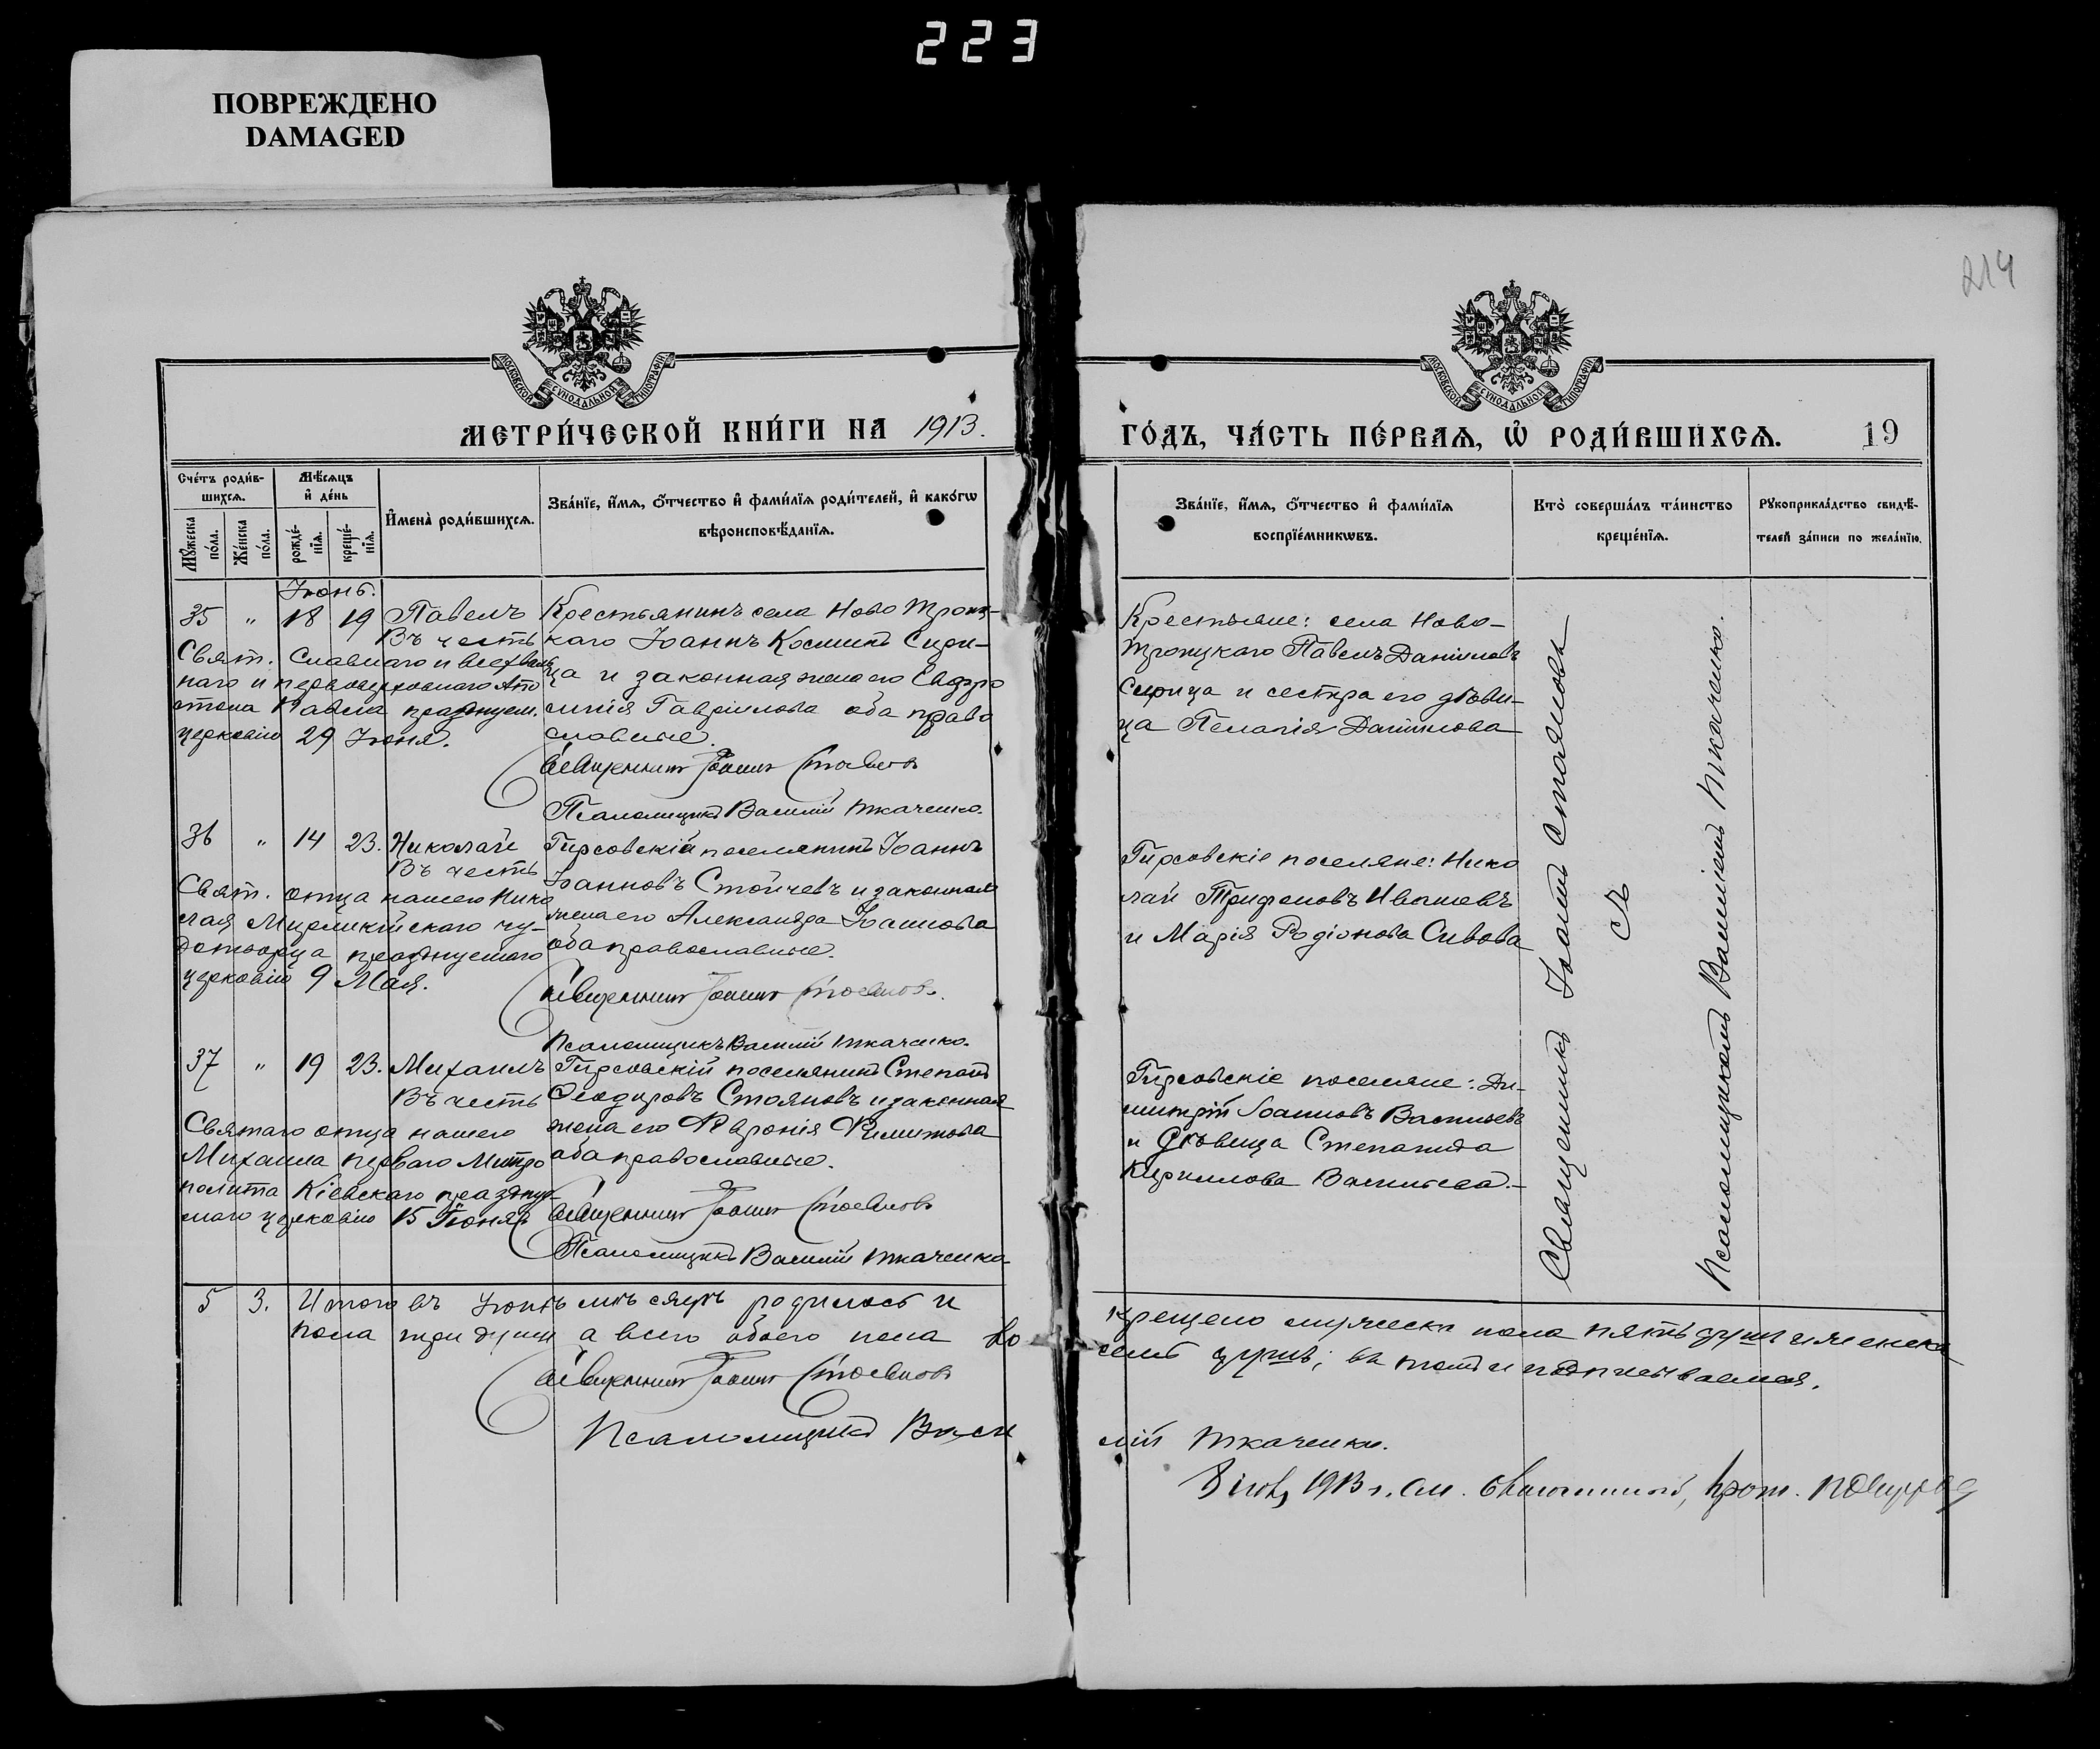 223
ПОВРЕЖДЕНО
DAMAGED
214
МОСКОВСКОЙ СѴНОДАЛЬНОЙ ТИПОГРАФІИ
МОСКОВСКОЙ СѴНОДАЛЬНОЙ ТИПОГРАФІИ
МЕТРИ́ЧЕСКОЙ КНИ́ГИ НА 1913.
ГО́ДЪ, ЧА́СТЬ ПЕ́РВАѦ, Ѡ҆ РОДИ́ВШИХСѦ. 19
Сче́тъ роди́в-
шихсѧ.
Мѣ́сѧцъ
и҆ де́нь
Мꙋ́жеска
по́ла.
Же́нска
по́ла.
рожде́-
нїѧ.
креще́-
нїѧ.
И҆мена̀ роди́вшихсѧ.
Зва́нїе, и҆́мѧ, ѻ҆́тчество и҆ фами́лїѧ роди́телей, и҆ како́гѡ
вѣроисповѣ́данїѧ.
Зва́нїе, и҆́мѧ, ѻ҆́тчество и҆ фами́лїѧ
воспрїе́мникѡвъ.
Кто̀ соверша́лъ та́инство
креще́нїѧ.
Рꙋкоприкла́дство свидѣ́-
телей за́писи по жела́нїю.
Іюнь.
35 " 18 19 Павелъ
Въ честь
Свят. Славнаго и всехваль
наго и первоверховнаго Апо
стола Павла празднуем.
церковію 29 Іюня.
Крестьянинъ села Ново Троиц-
каго Іоаннъ Косминъ Сири-
ца и законная жена его Евфро
синія Гавріилова оба право
славные.
Священникъ Іоаннъ Стояновъ
Псаломщикъ Василій Ткаченко.
Крестьяне: села Ново-
Троицкаго Павелъ Даніиловъ
Сирица и сестра его дѣви-
ца Пелагія Даніилова
36 " 14 23. Николай
Въ честь
Свят. отца нашего Нико
лая Мирликійскаго чу-
дотворца празднуемаго
церковію 9 Мая.
Гирсовскій поселянинъ Іоаннъ
Іоанновъ Стойчевъ и законная
жена его Александра Іоаннова
оба православные.
Священникъ Іоаннъ Стояновъ.
Псаломщикъ Василій Ткаченко.
Гирсовскіе поселяне: Нико
лай Трифоновъ
и Марія Родіонова Сивова
37 " 19 23. Михаилъ
Въ честь
Святаго отца нашего
Михаила перваго Митро
полита Кіевскаго праздну-
маго церковію 15 Іюня
Гирсовскій поселянинъ Степанъ
Ѳеодоровъ Стояновъ и законная
жена его Февронія Филиппова
оба православные.
Священникъ Іоаннъ Стояновъ
Псаломщикъ Василій Ткаченко
Гирсовскіе поселяне: Ди-
митрій Іоанновъ Васильевъ
и дѣвица Степанида
Кириллова Васильева.-
Священникъ Іоаннъ Стояновъ
съ
Псаломщикомъ Василіемъ Ткаченко.
5 3. Итого въ Іюнѣ мѣсяцѣ родилось и крещено мужеска пола пять душъ и женска
пола три души а всего обоего пола во семь душъ; въ томъ и подписываемся.
Священникъ Іоаннъ Стояновъ
Псаломщикъ Васи лій Ткаченко.
1913 г. см. прот.